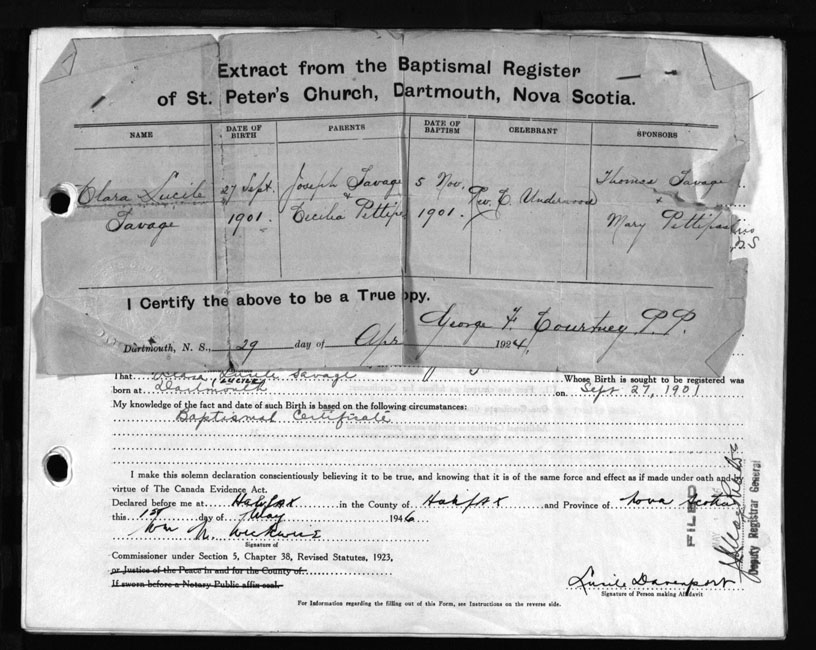 Extract from the Baptismal Register
of St. Peter's Church, Dartmouth, Nova Scotia.
NAME DATE OF BIRTH PARENTS DATE OF BAPTISM CELEBRANT SPONSORS
Clara Lucile 27 Sept. Joseph Savage & 5 Nov. Rev. C. Underwood Thomas Savage +
Savage 1901. Cecilia Pettipa 1901. Mary Pettipas
N.S
I Certify the above to be a True opy.
George F. Courtney P.P.
Dartmouth, N. S., 29 day of Apr 1924,
That Lucile Savage Whose Birth is sought to be registered was
LUCILE
born at Dartmouth on Sept 27, 1901
My knowledge of the fact and date of such Birth is based on the following circumstances:
Baptismal Certificate
I make this solemn declaration conscientiously believing it to be true, and knowing that it is of the same force and effect as if made under oath and by
virtue of The Canada Evidence Act.
Declared before me at Halifax in the County of Halifax and Province of Nova Scotia
this 1st day of May 1946
Wm N.
Signature of
Commissioner under Section 5, Chapter 38, Revised Statutes, 1923,
or Justice of the Peace in and for the County of
If sworn before a Notary Public affix seal.
Lucile Davenport
Signature of Person making Affidavit
For Information regarding the filling out of this Form, see Instructions on the reverse side.
FILED
Deputy Registrar General